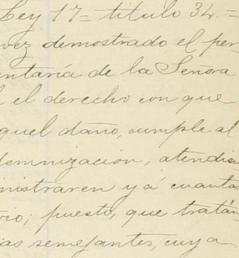 Ley 17= titulo 34.=
vez demostrado el per
entaría de la Señora
el derecho con que
quel daño, cumple al
demnizacion, atendie
nistraren yá cuanta
rio; puesto, que tratán
ias semejantes, cuya